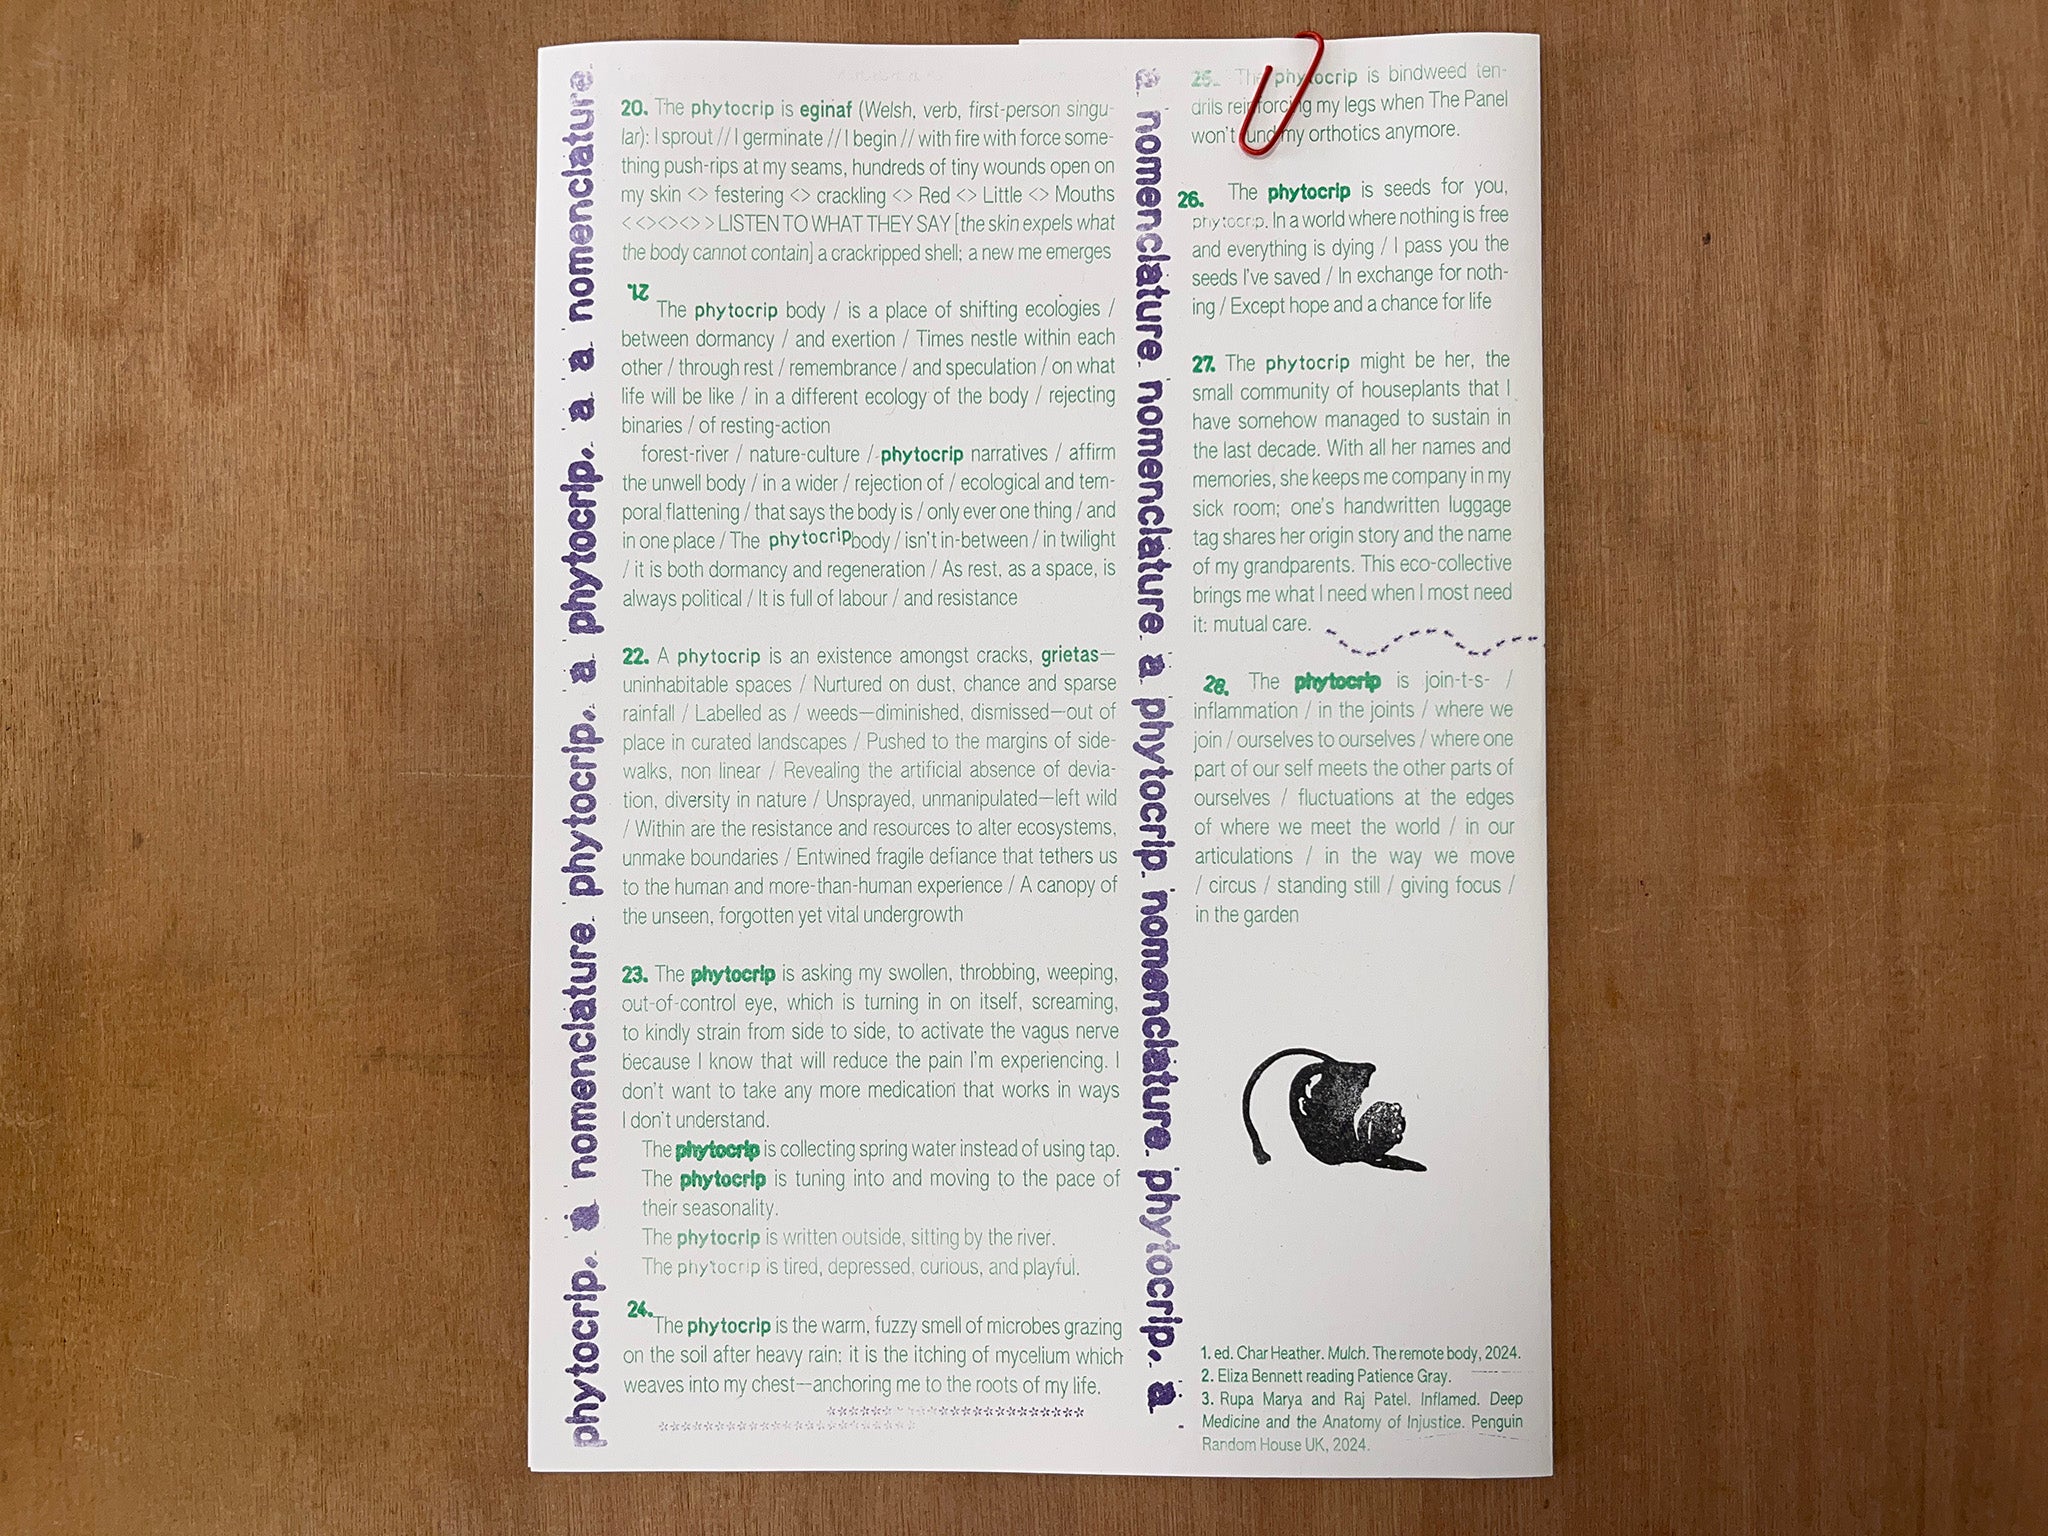 phytocrip. a nomenclature phytocrip. a phytocrip. a a nomenclature
20. The phytocrip is eginaf (Welsh, verb, first-person singu-
lar): I sprout // I germinate // I begin // with fire with force some-
thing push-rips at my seams, hundreds of tiny wounds open on
my skin <> festering <> crackling <> Red <> Little <> Mouths
< <><><> > LISTEN TO WHAT THEY SAY [the skin expels what
the body cannot contain] a crackripped shell; a new me emerges
21.
The phytocrip body / is a place of shifting ecologies /
between dormancy / and exertion / Times nestle within each
other / through rest / remembrance / and speculation / on what
life will be like / in a different ecology of the body / rejecting
binaries / of resting-action
forest-river / nature-culture / phytocrip narratives / affirm
the unwell body / in a wider / rejection of / ecological and tem-
poral flattening / that says the body is / only ever one thing / and
in one place / The phytocrip body / isn't in-between / in twilight
/ it is both dormancy and regeneration / As rest, as a space, is
always political / It is full of labour / and resistance
22. A phytocrip is an existence amongst cracks, grietas—
uninhabitable spaces / Nurtured on dust, chance and sparse
rainfall / Labelled as / weeds—diminished, dismissed—out of
place in curated landscapes / Pushed to the margins of side-
walks, non linear / Revealing the artificial absence of devia-
tion, diversity in nature / Unsprayed, unmanipulated—left wild
/ Within are the resistance and resources to alter ecosystems,
unmake boundaries / Entwined fragile defiance that tethers us
to the human and more-than-human experience / A canopy of
the unseen, forgotten yet vital undergrowth
23. The phytocrip is asking my swollen, throbbing, weeping,
out-of-control eye, which is turning in on itself, screaming,
to kindly strain from side to side, to activate the vagus nerve
because I know that will reduce the pain I'm experiencing. I
don't want to take any more medication that works in ways
I don't understand.
The phytocrip is collecting spring water instead of using tap.
The phytocrip is tuning into and moving to the pace of
their seasonality.
The phytocrip is written outside, sitting by the river.
The phytocrip is tired, depressed, curious, and playful.
24. The phytocrip is the warm, fuzzy smell of microbes grazing
on the soil after heavy rain: it is the itching of mycelium which
weaves into my chest—anchoring me to the roots of my life.
a nomenclature nomenclature a phytocrip nomenclature phytocrip. a
25. The phytocrip is bindweed ten-
drils reinforcing my legs when The Panel
won't fund my orthotics anymore.
26. The phytocrip is seeds for you,
phytocrip. In a world where nothing is free
and everything is dying / I pass you the
seeds I've saved / In exchange for noth-
ing / Except hope and a chance for life
27. The phytocrip might be her, the
small community of houseplants that I
have somehow managed to sustain in
the last decade. With all her names and
memories, she keeps me company in my
sick room; one's handwritten luggage
tag shares her origin story and the name
of my grandparents. This eco-collective
brings me what I need when I most need
it: mutual care.
28. The phytocrip is join-t-s- /
inflammation / in the joints / where we
join / ourselves to ourselves / where one
part of our self meets the other parts of
ourselves / fluctuations at the edges
of where we meet the world / in our
articulations / in the way we move
/ circus / standing still / giving focus /
in the garden
1. ed. Char Heather. Mulch. The remote body, 2024.
2. Eliza Bennett reading Patience Gray.
3. Rupa Marya and Raj Patel. Inflamed. Deep
Medicine and the Anatomy of Injustice. Penguin
Random House UK, 2024.